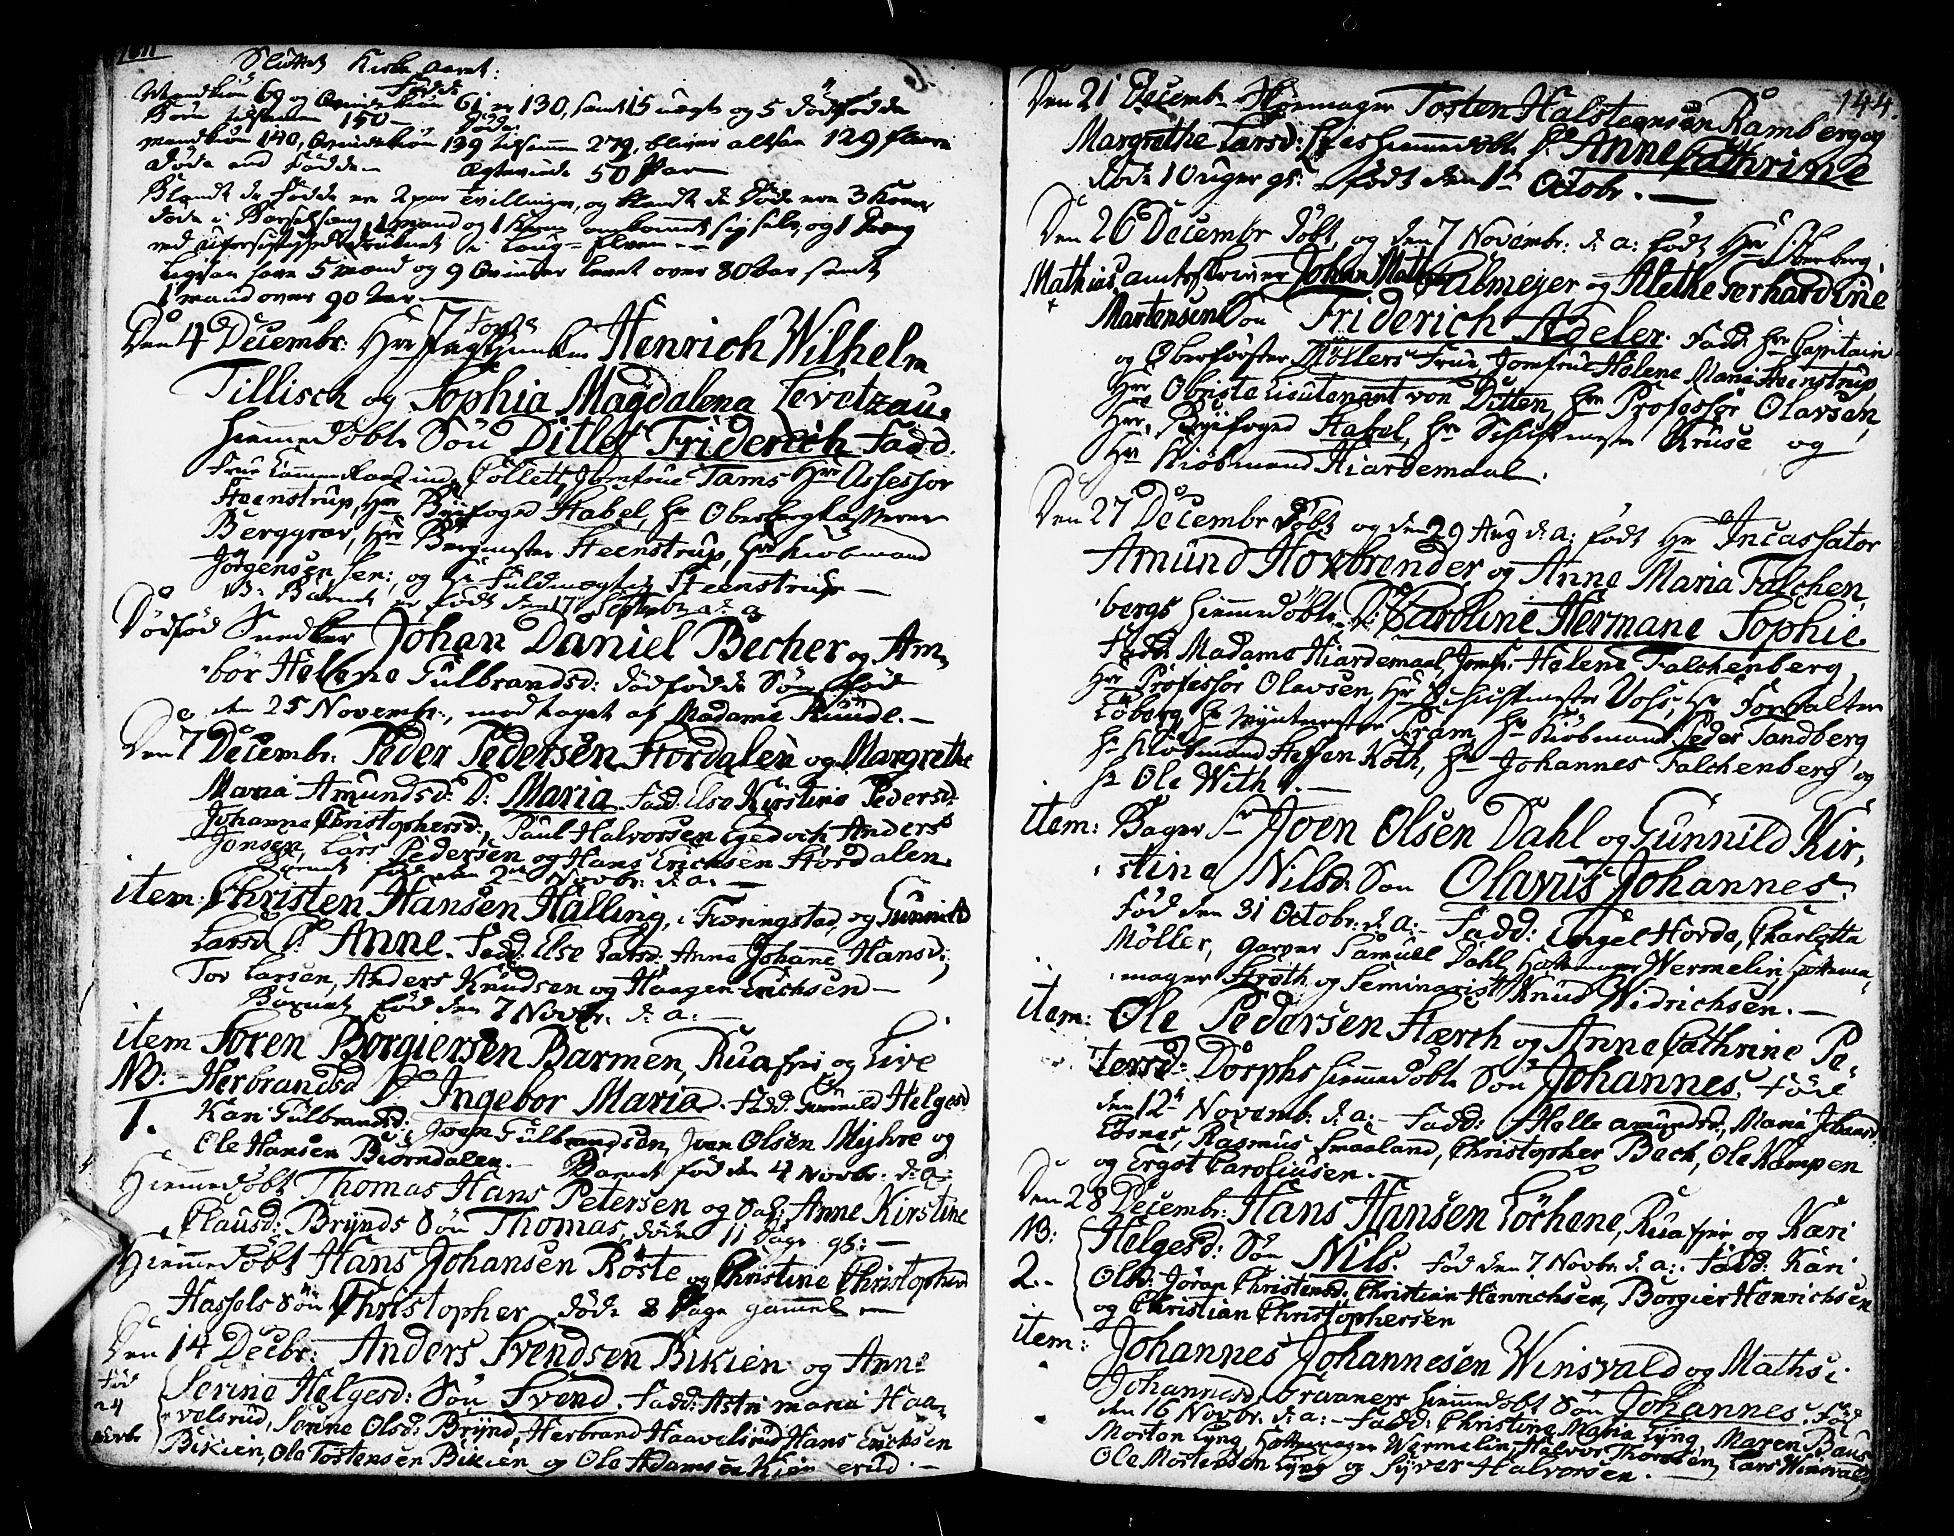 Sluttet Kirke aaret:
Fødde
Mandkiön 69 og Qvindekiön 61 er 130, samt 15 uægte og 5 dödfödde
Börn tilsammen 150 — Döde
mandkiön 140, Qvindekiön 139 tilsamm 279, bliver altsaa 129 fleere
døde end fødde — Ægteviede 50 Par —
Blandt de fødde ere 2 par Tvillinger, og blandt de døde ere 3 Koner
døde i Barselseng, 1 mand og 1 omkommet sig selv, og 1 Dreng
ved uforsigtighed druknet i Laug-Elven —
Ligesaa have 5 mænd og 9 Qvinder levet over 80 Aar samt
1 mand over 90 Aar. —
Den 4 Decembr: Hr Jagtjunker Henrich Wilhelm
Tillisch og Sophia Magdalena Levetzaus
hiemmedöbte Sön Ditlef Friderich Fadd.
Frue Kammerraadinde Collett, Jomfrue Tams Hr Assessor
Steenstrup, Hr Byefoged Stabel, Hr Oberbergkasserer
Berggrav, Hr Bergmester Steenstrup, Hr Kiöbmand
Jörgensen sen:, og Hr Fuldmægtig Steenstrup —
NB: Barnet er född den 17 Septembr d: a:
Dödfød Snedker Johan Daniel Becher og Am-
bör Hellene Gulbrandsd: dödfödde Sön fød
den 25 Novembr, modtaget af Madame Rund. —
Den 7 Decembr: Peder Pedersen Hordalen og Margrethe
Maria Amundsd: D: Maria. Fadd: Else Kirstine Pedersd:
Johanne Christophersd:, Paul Halvorsen Eged och Anders
Jonsen, Lars Pedersen og Hans Erichsen Hordalen
Barnet fød den 2 Novbr: d: a: —
item: Christen Hansen Halling, i Tæringstad, og Gunnild
Larsd D. Anne. Fadd: Else Larsd: Anne Johane Hansd:,
Tor Larsen, Anders Knudsen og Haagen Erichsen —
Barnet fød den 7 Novbr: d: a: —
item Soren Borgiersen Barmen, Ruafjer og Live
NB: Herbrandsd D. Ingebor Maria. Fadd: Gunnild Helgesd
1. Kari Gulbrandsd: Joen Gulbrandsen, Joen Olsen Myhre og
Ole Hansen Biörndalen. — Barnet fød den 4 Novbr: d: a:
Hiemmedöbt Thomas Hans Petersen og Anne Kirstine
Clausd: Brynds Sön Thomas, døde 11 Dage gl: —
Hiemmedöbt Hans Johansen Röste og Christine Christophersd
Hassels Sön Christopher døde 8 Dage gammel —
Den 14 Decbr: Anders Svendsen Bikien og Anne
Fød Serine Helgesd: Sön Svend. Fadd: Astri maria Haa-
24 velsrud, Sønne Olsd: Brynd, Herbrand Haavelsrud, Hans Erichsen
Novbr Bikien, Ole Tostensen Bikien og Ole Adamsen Kien erud. —
144.
Den 21 Decemb: Tosten Halsteensen Ramberg og
Margrethe Larsd: hiemmedöbte D. Anne Cathrine
døde 10 uger gl: — født den 1ste Octobr. —
Den 26 Decembr döbt, og den 7 Novembr: d: a: født Hr Oberberg,
Mathias amtsskriver Johan Calmeyer og Alethe Gerhardine
Martensens Sön Friderich Adeler. Fadd: Hr Capitain
og Oberförster Möllers Frue, Jomfrue Helene Maria Steenstrup
Hr Obriste Lieutenant von Ditten, Hr Professor Olavsen,
Hr Byefoged Stabel, Hr Schiftmester Kruse og
Hr Kiöbmand Hiardemaal.
Den 27 Decembr döbt og den 29 Aug d: a: født Hr Incassator
Amund Hoxbrender og Anne Maria Falchen,
bergs hiemmedöbte D: Caroline Hermane Sophie.
Fadd: Madame Hiardemaal, Jomfr: Helene Falchenberg,
Hr Professor Olavsen, Hr Schiftmester Voss, Hr Forvalter
Löberg, Hr Myntmester Pram, Hr Kiöbmand Peder Sandberg
Hr Kiöbmand Steffen Koth, Hr Johannes Falchenberg, og
Hr Ole With. —
item: Bager Sr Joen Olsen Dahl og Gunnild Kir-
stine Nilsd: Sön Olavus Johannes.
Fød den 31 Octobr: d: a: — Fadd: Engel Horda, Charlotta
Möller, Garver Samuell Dahl, Hattemager Wermelin, Hattema-
mager Stroth og Seminarist Knud Didrichsen. —
item: Ole Pedersen Stærch og Anne Cathrine Pe-
tersd: Dorphs hiemmedöbte Sön Johannes. Føde
den 12te Novemb: d: a: — Fadd: Helle amundsd:, Maria Johansd
Ebsnes, Rasmus Smaaland, Christopher Bach, Ole Kampen
og Ergot Caroliusen. —
Den 28 Decembr: Hans Hansen Lörhene, Ruafjer, og Kari
NB: Helgesd: Sön Nils. Fød den 7 Novbr: d: a:. Fadd: Kari
2. Olsd: Jöran Christensd: Christian Henrichsen, Borgier Henrichsen
og Christian Christophersen
item: Johannes Johannesen Winsvald og Maths i
Johannesd: Gravaners hiemmedöbt Sön Johannes. Fød
den 16 Novbr: d: a: — Fadd: Christine Maria Lyng, Maren Baus
Morten Lyng, Hattemager Wermelin, Halvor Thorsen, Lars Winsvald
Ole Mortensen Lyng og Syver Halvorsen. —